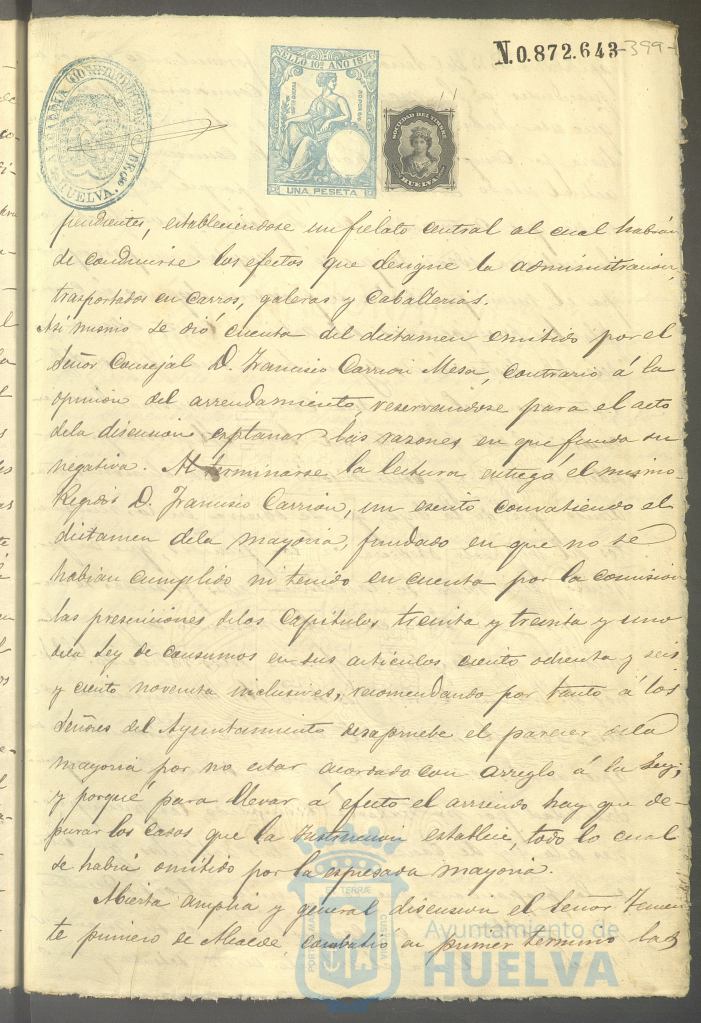 N.0.872.643
399
ALCALDIA CONSTITUCIONAL DE HUELVA.
SELLO 10º AÑO 1876
UNA PESETA
SOCIEDAD DEL TIMBRE
HUELVA
pendientes, estableciendose un fielato central al cual habrán
de conducirse los efectos que designe la administracion,
trasportados en carros, galeras y caballerias.
Asi mismo se dió cuenta del dictamen emitido por el
Señor Consejal D. Francisco Carrion Mesa, contrario á la
opinion del arrendamiento, reservandose para el acto
dela discusion esplanar las razones en que funda su
negativa. Al terminarse la lectura entregó el mismo
Regidor D. Francisco Carrion, un escrito convatiendo el
dictamen dela mayoria, fundado en que no se
habian cumplido ni tenido en cuenta por la comision
las prescriciones delos capitulos treinta y treinta y uno
dela Ley de consumos en sus articulos ciento ochenta y seis
y ciento noventa inclusives, recomendando por tanto á los
Señores del Ayuntamiento desapruebe el parecer dela
mayoria por no estar acordado con arreglo á la Ley,
y porqué para llevar á efecto el arriendo hay que de-
purar los casos que la Instruccion establece, todo lo cual
se habia omitido por la espresada mayoria.
Abierta amplia y general discusion el Señor Tenien
te primero de Alcalde, combatió en primer termino las
PORTUS MARIS ET TERRAE CUSTODIA
Ayuntamiento de
HUELVA